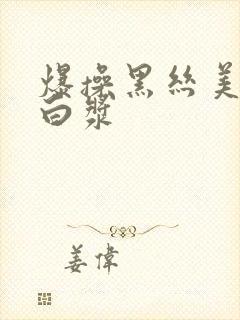 爆操黑丝美
白浆
姜偉